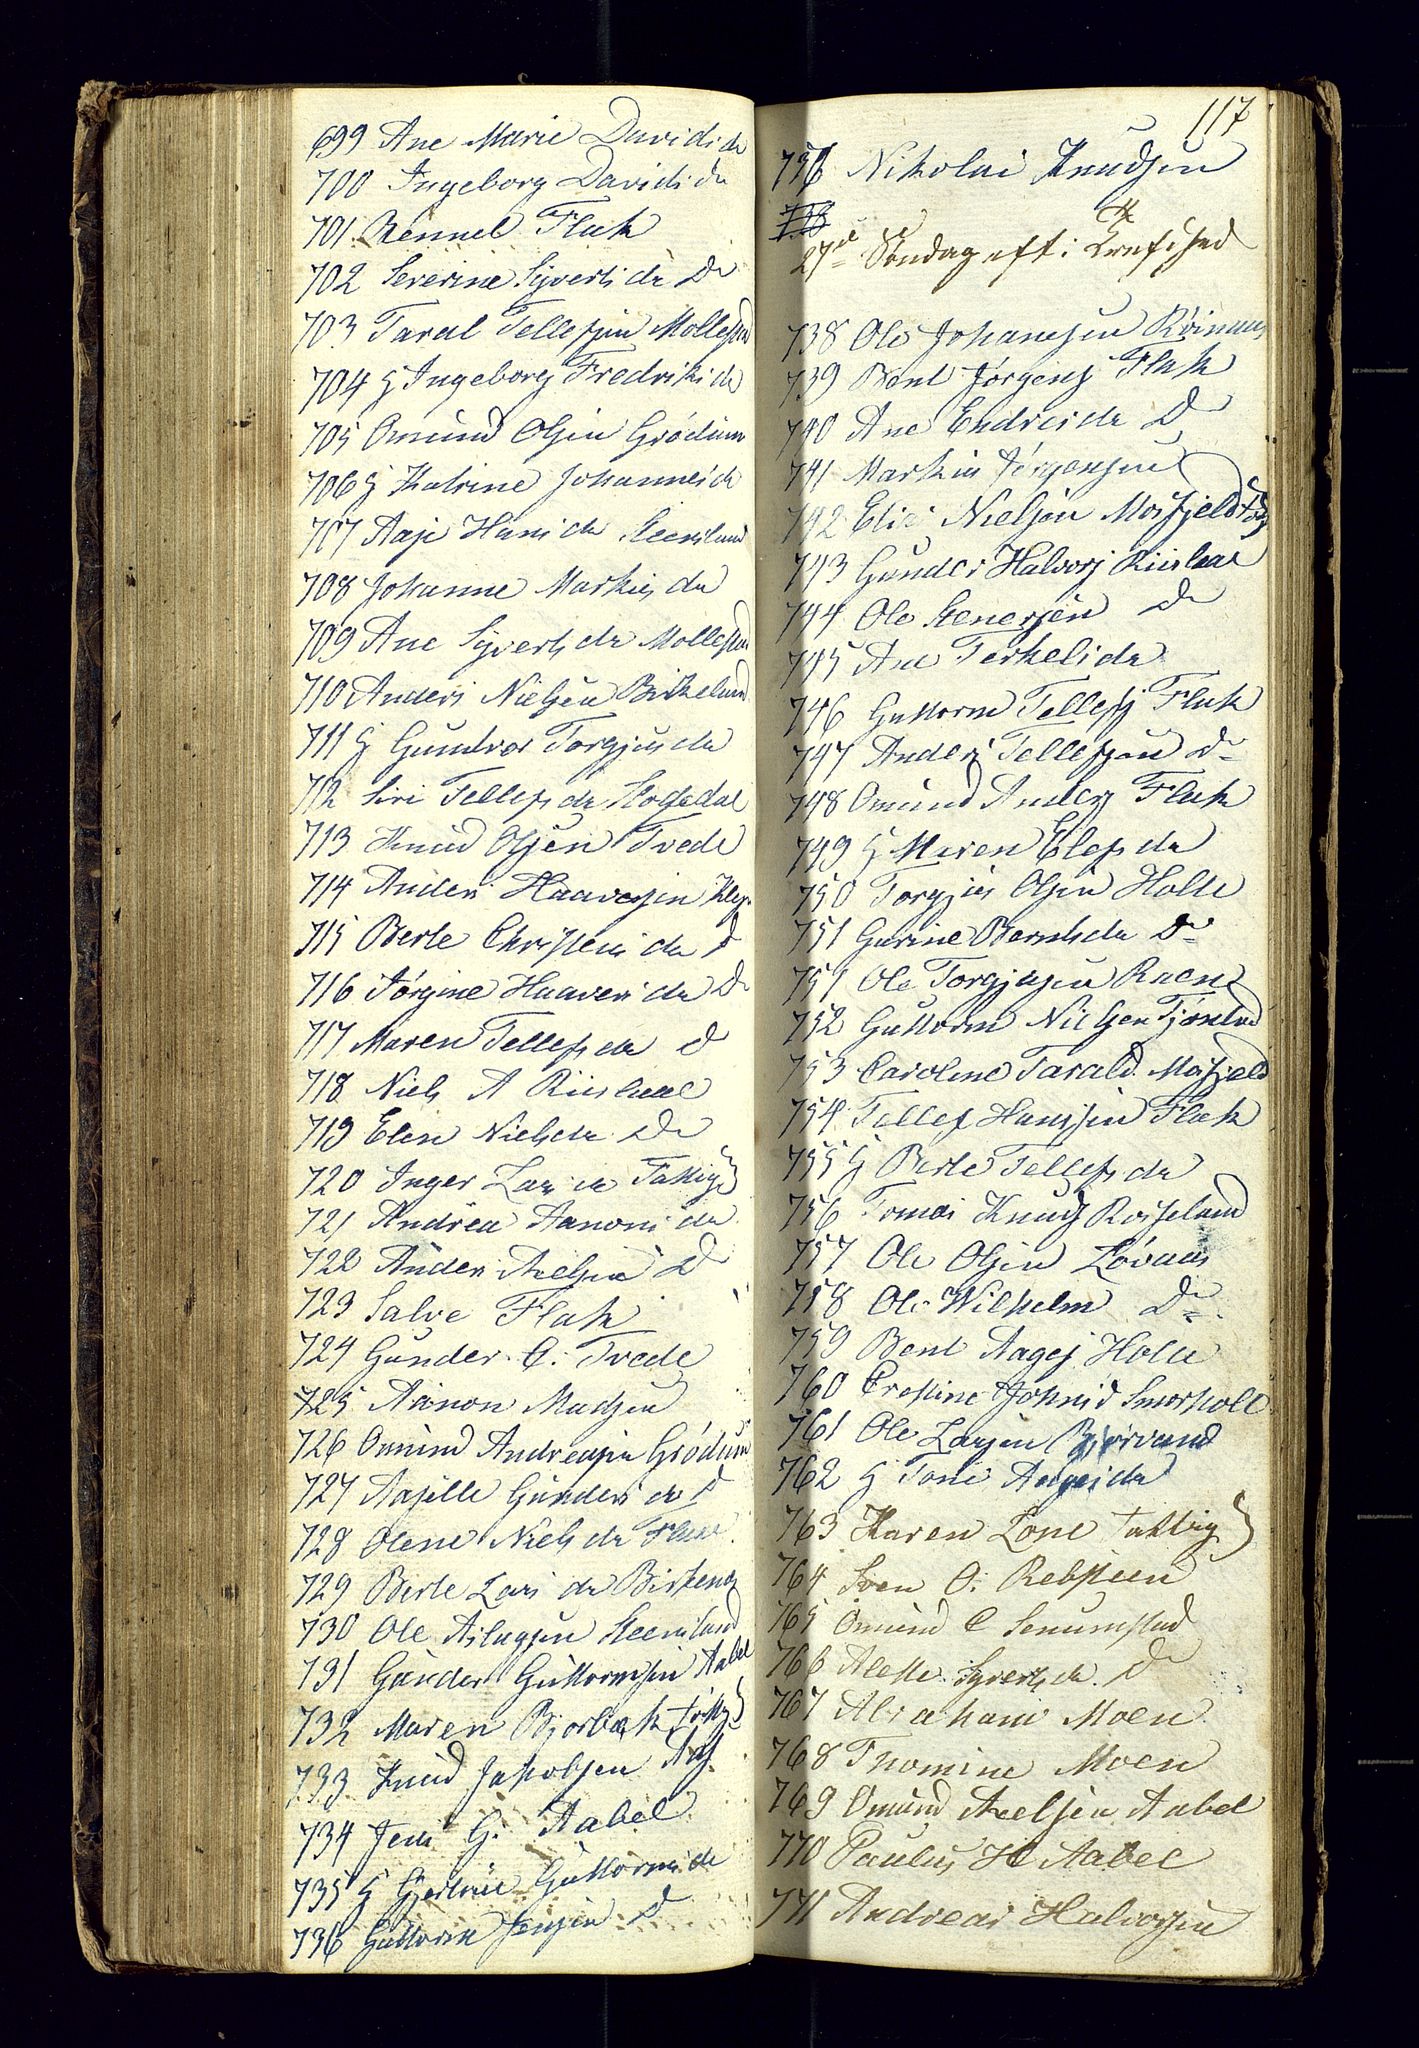 699 Ane Marie Davids da
700 Ingeborg Davids da
701 Rennel Flak
702 Severine Syverts da Do
703 Taral Tellefsen Mollestad
704 G Ingeborg Fredriks da
705 Omund Olsen Grødum
706 G Katrine Johannes da
707 Aase Hans da Steensland
708 Johanne Markus da
709 Ane Syverts da Mollestad
710 Anders Nielsen Birkeland
711 G Gundvor Torgjus da
712 Siri Tellefs da Hogsdal
713 Knud Olsen Tvede
714 Anders Haaversen Klep.
715 Berte Christens da D
716 Jørgine Haavers da Do
717 Maren Tellefs da D
718 Niels A Riislaae
719 Elen Niels da Do
720 Inger Lars da Fattig
721 Andrea Aanons da
722 Anders Axelsen Do
723 Salve Flak
724 Gunder C: Tvede
725 Aanon Madsen
726 Omund Andreasen Grødum
727 Aasille Gunders da D
728 Olene Niels da Flak
729 Berte Lars da Birkenes
730 Ole Aslagsen Steensland
731 Gunder Guttormsen Aabel
732 Maren Bjorbæk fattig
733 Knud Jakobsen
734 Jens G. Aabel
735 G Gjertrue Guttorms da
736 Guttorm Jensen D
117
736 Nikolai Knudsen
738
27de Søndag eft: Trefoghed
738 Ole Johannesen
739 Bent Jørgens Flak
740 Ane Endres da Do
741 Markus Jørgensen
742 Elie Nielsen Mosfjeld
743 Gunder Halvors Riislaae
744 Ole Stenersen Do
745 Ane Terkels da
746 Guttorm Tellefs Flak
747 Anders Tellefsen Do
748 Omund Anders Flak
749 G Maren Elefs da
750 Torgjus Olsen Holte
751 Gurine Bernts da Do
751 Ole Torgjusen Raen
752 Guttorm Nielsen
753 Caroline Tarald Mosfjeld
754 Tellef Hansen Flak
755 G Berte Tellefs da
756 Tomas Knuds Rosseland
757 Ole Olsen Løvaas
758 Ole Wilhelm Do
759 Bent Aages Holte
760
761 Ole Larsen Bjorvand
762 G Tone Aages da
763 Karen Lone fattig
764 Sven O. Rebsteen
765 Omund C Senumstad
766 Alette Syverts da Do
767 Abraham Moen
768 Thomine Moen
769 Omund Axelsen Aabel
770 Paulus H Aabel
771 Andreas Halvorsen